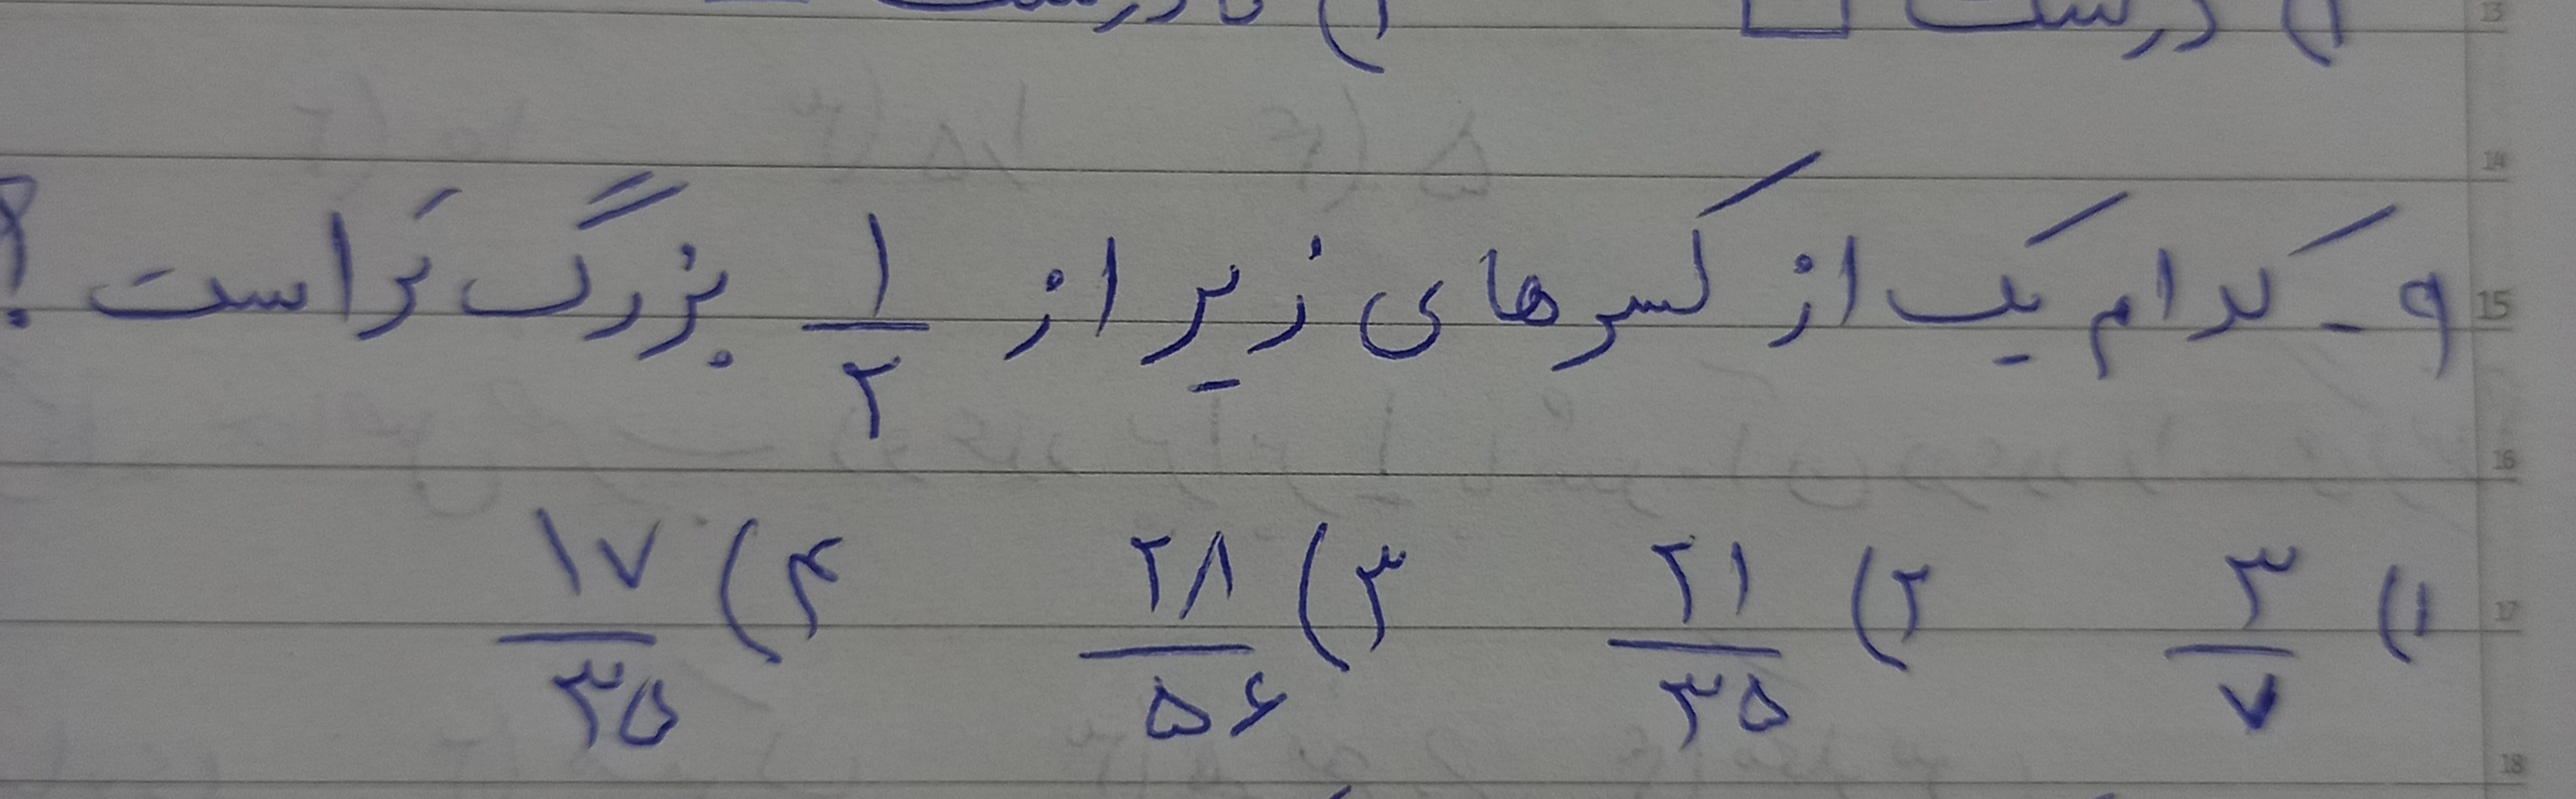 ۱) درست □ ۲) نادرست
۹ـ کدام یک از کسرهای زیر از ۱/۲ بزرگ تر است؟
۱) ۳/۷ ۲) ۲۱/۳۵ ۳) ۲۸/۵۶ ۴) ۱۷/۳۵